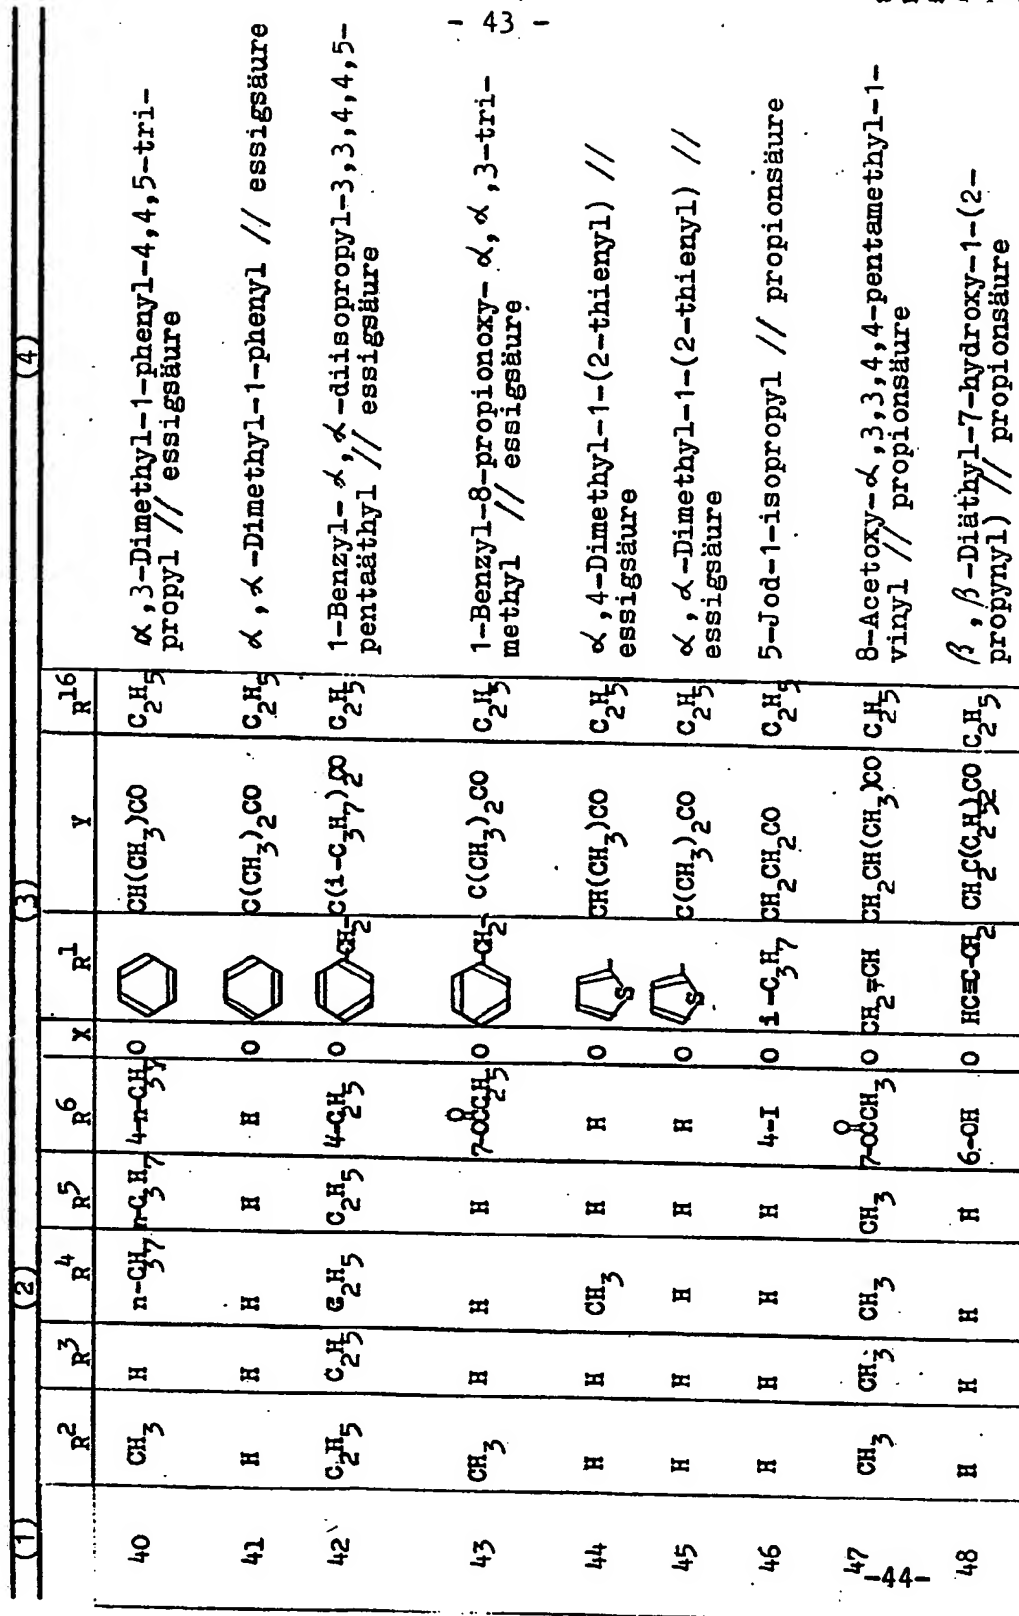 - 43 -
(1) (2) (3) (4)
R² R³ R⁴ R⁵ R⁶ X R¹ Y R¹⁶
40 CH₃ H n-C₃H₇ n-C₃H₇ 4-n-C₃H₇ O CH(CH₃)CO C₂H₅ α,3-Dimethyl-1-phenyl-4,4,5-tri-
propyl // essigsäure
41 H H H H H O C(CH₃)₂CO C₂H₅ α,α-Dimethyl-1-phenyl // essigsäure
42 C₂H₅ C₂H₅ C₂H₅ C₂H₅ 4-C₂H₅ O -CH₂- C(i-C₃H₇)₂CO C₂H₅ 1-Benzyl-α,α-diisopropyl-3,3,4,4,5-
pentaäthyl // essigsäure
43 CH₃ H H H 7-OCC₂H₅ O O -CH₂- C(CH₃)₂CO C₂H₅ 1-Benzyl-8-propionoxy-α,α,3-tri-
methyl // essigsäure
44 H H CH₃ H H O S CH(CH₃)CO C₂H₅ α,4-Dimethyl-1-(2-thienyl) //
essigsäure
45 H H H H H O S C(CH₃)₂CO C₂H₅ α,α-Dimethyl-1-(2-thienyl) //
essigsäure
46 H H H H 4-I O i-C₃H₇ CH₂CH₂CO C₂H₅ 5-Jod-1-isopropyl // propionsäure
47 CH₃ CH₃ CH₃ CH₃ 7-OCCH₃ O O CH₂=CH CH₂CH(CH₃)CO C₂H₅ 8-Acetoxy-α,3,3,4,4-pentamethyl-1-
vinyl // propionsäure
48 H H H H 6-OH O HC≡C-CH₂ CH₂C(C₂H₅)₂CO C₂H₅ β,β-Diäthyl-7-hydroxy-1-(2-
propynyl) // propionsäure
-44-